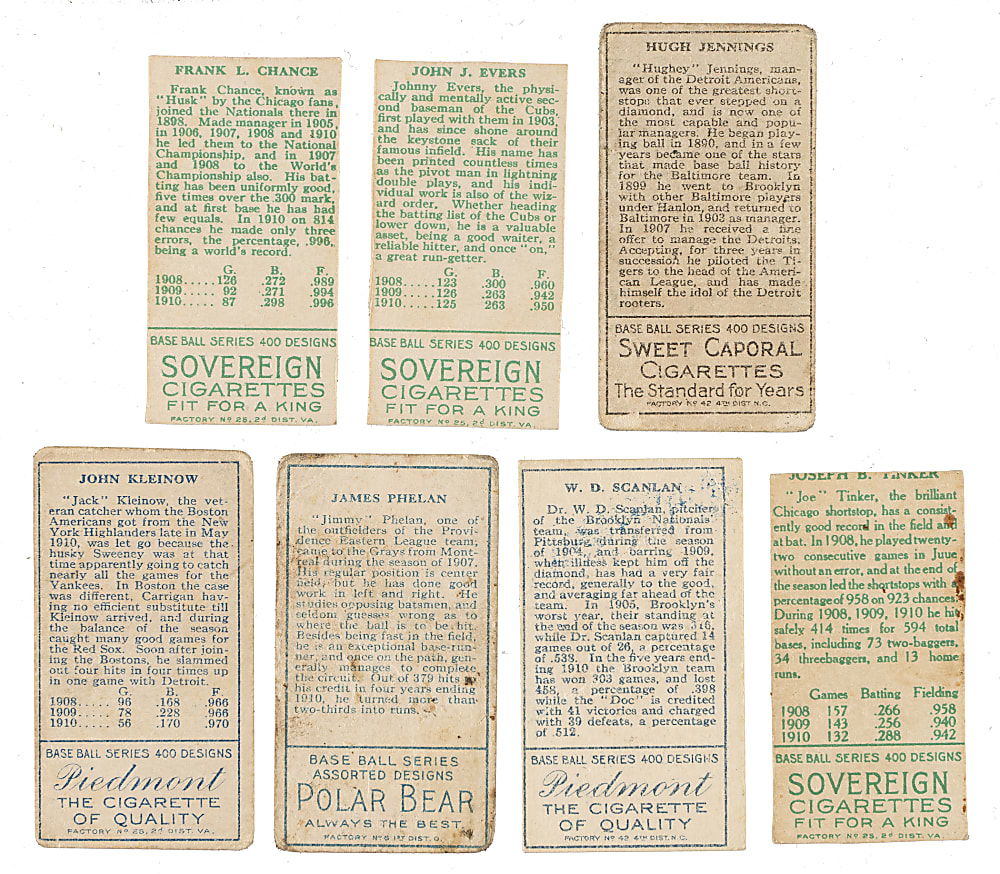 FRANK L. CHANCE
Frank Chance, known as
"Husk" by the Chicago fans,
joined the Nationals there in
1898. Made manager in 1905,
in 1906, 1907, 1908 and 1910
he led them to the National
Championship, and in 1907
and 1908 to the World's
Championship also. His bat-
ting has been uniformly good,
five times over the .300 mark,
and at first base he has had
few equals. In 1910 on 814
chances he made only three
errors, the percentage, .996,
being a world's record.
G. B. F.
1908.....126 .272 .989
1909..... 92 .271 .994
1910..... 87 .298 .996
BASE BALL SERIES 400 DESIGNS
SOVEREIGN
CIGARETTES
FIT FOR A KING
FACTORY Nº 25, 2d DIST. VA.
JOHN J. EVERS
Johnny Evers, the physi-
cally and mentally active sec-
ond baseman of the Cubs,
first played with them in 1903,
and has since shone around
the keystone sack of their
famous infield. His name has
been printed countless times
as the pivot man in lightning
double plays, and his indi-
vidual work is also of the wiz-
ard order. Whether heading
the batting list of the Cubs or
lower down, he is a valuable
asset, being a good waiter, a
reliable hitter, and once "on,"
a great run-getter.
G. B. F.
1908.....123 .300 .960
1909.....126 .263 .942
1910.....125 263 .950
BASE BALL SERIES 400 DESIGNS
SOVEREIGN
CIGARETTES
FIT FOR A KING
FACTORY Nº 25, 2d DIST. VA.
HUGH JENNINGS
"Hughey" Jennings, man-
ager of the Detroit Americans,
was one of the greatest short-
stops that ever stepped on a
diamond, and is now one of
the most capable and popu-
lar managers. He began play-
ing ball in 1890, and in a few
years became one of the stars
that made base ball history
for the Baltimore team. In
1899 he went to Brooklyn
with other Baltimore players
under Hanlon, and returned to
Baltimore in 1903 as manager.
In 1907 he received a fine
offer to manage the Detroits.
Accepting, for three years in
succession he piloted the Ti-
gers to the head of the Ameri-
can League, and has made
himself the idol of the Detroit
rooters.
BASE BALL SERIES 400 DESIGNS
SWEET CAPORAL
CIGARETTES
The Standard for Years
FACTORY Nº 42 4TH DIST. N.C.
JOHN KLEINOW
"Jack" Kleinow, the vet-
eran catcher whom the Boston
Americans got from the New
York Highlanders late in May
1910, was let go because the
husky Sweeney was at that
time apparently going to catch
nearly all the games for the
Yankees. In Boston the case
was different, Carrigan hav-
ing no efficient substitute till
Kleinow arrived, and during
the balance of the season
caught many good games for
the Red Sox. Soon after join-
ing the Bostons, he slammed
out four hits in four times up
in one game with Detroit.
G. B. F.
1908..... 96 .168 .966
1909..... 78 .228 .966
1910..... 56 .170 .970
BASE BALL SERIES 400 DESIGNS
Piedmont
THE CIGARETTE
OF QUALITY
FACTORY Nº 25, 2d DIST. VA.
JAMES PHELAN
"Jimmy" Phelan, one of
the outfielders of the Provi-
dence Eastern League team,
came to the Grays from Mont-
real during the season of 1907.
His regular position is center
field, but he has done good
work in left and right. He
studies opposing batsmen, and
seldom guesses wrong as to
where the ball is to be hit.
Besides being fast in the field,
he is an exceptional base-run-
ner, and once on the path, gen-
erally manages to complete
the circuit. Out of 379 hits to
his credit in four years ending
1910, he turned more than
two-thirds into runs.
BASE BALL SERIES
ASSORTED DESIGNS
POLAR BEAR
ALWAYS THE BEST
FACTORY Nº 6 1st DIST. O.
W. D. SCANLAN
Dr. W. D. Scanlan, pitcher
of the Brooklyn Nationals'
team, was transferred from
Pittsburg during the season
of 1904, and barring 1909,
when illness kept him off the
diamond, has had a very fair
record, generally to the good,
and averaging far ahead of the
team. In 1905, Brooklyn's
worst year, their standing at
the end of the season was .316,
while Dr. Scanlan captured 14
games out of 26, a percentage
of .538. In the five years end-
ing 1910 the Brooklyn team
has won 303 games, and lost
458, a percentage of .398
while the "Doc" is credited
with 41 victories and charged
with 39 defeats, a percentage
of .512.
BASE BALL SERIES 400 DESIGNS
Piedmont
THE CIGARETTE
OF QUALITY
FACTORY Nº 42 4TH DIST. N.C.
JOSEPH B. TINKER
"Joe" Tinker, the brilliant
Chicago shortstop, has a consist-
ently good record in the field and
at bat. In 1908, he played twenty-
two consecutive games in June
without an error, and at the end of
the season led the shortstops with a
percentage of 958 on 923 chances.
During 1908, 1909, 1910 he hit
safely 414 times for 594 total
bases, including 73 two-baggers,
34 threebaggers, and 13 home
runs.
Games Batting Fielding
1908 157 .266 .958
1909 143 .256 .940
1910 132 .288 .942
BASE BALL SERIES 400 DESIGNS
SOVEREIGN
CIGARETTES
FIT FOR A KING
FACTORY Nº 25, 2d DIST. VA.